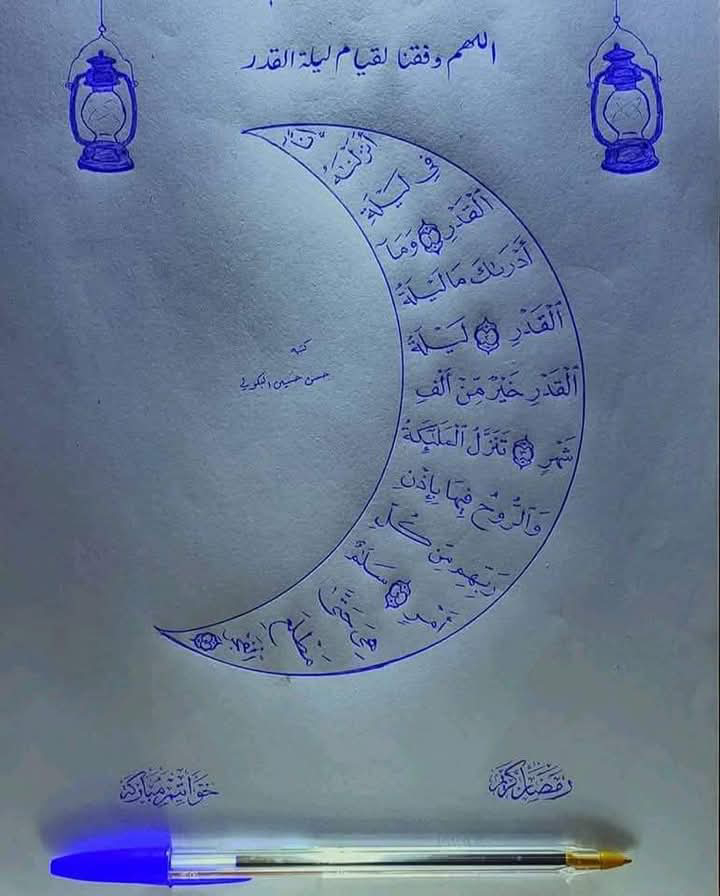 اللهم وفقنا لقيام ليلة القدر
إِنَّآ
أَنزَلْنَٰهُ
فِى لَيْلَةِ
ٱلْقَدْرِ ۝ وَمَآ
أَدْرَىٰكَ مَا لَيْلَةُ
ٱلْقَدْرِ ۝ لَيْلَةُ
ٱلْقَدْرِ خَيْرٌ مِّنْ أَلْفِ
شَهْرٍ ۝ تَنَزَّلُ ٱلْمَلَٰٓئِكَةُ
وَٱلرُّوحُ فِيهَا بِإِذْنِ
رَبِّهِم مِّن كُلِّ
أَمْرٍ ۝ سَلَٰمٌ
هِىَ حَتَّىٰ
مَطْلَعِ
ٱلْفَجْرِ ۝
كتبه
حسن حسين
رمضان كريم
خواتم مباركة